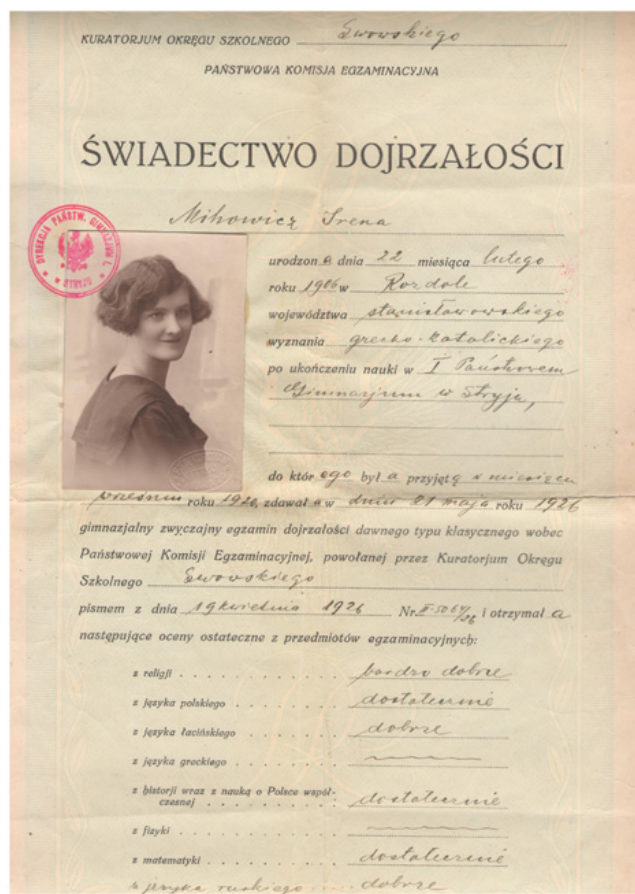 KURATORJUM OKRĘGU SZKOLNEGO Lwowskiego
PAŃSTWOWA KOMISJA EGZAMINACYJNA
ŚWIADECTWO DOJRZAŁOŚCI
Mihowicz Irena
DYREKCJA PAŃSTW. GIMNAZJUM I. W STRYJU
urodzona dnia 22 miesiąca lutego
roku 1906 w Rozdole
województwa stanisławowskiego
wyznania grecko-katolickiego
po ukończeniu nauki w I Państwowem
Gimnazjum w Stryju,
do którego była przyjętą w miesiącu
wrześniu roku 1920, zdawała w dniu 21 maja roku 1926
gimnazjalny zwyczajny egzamin dojrzałości dawnego typu klasycznego wobec
Państwowej Komisji Egzaminacyjnej, powołanej przez Kuratorjum Okręgu
Szkolnego Lwowskiego
pismem z dnia 19 kwietnia 1926 Nr. II-5064/26 i otrzymała
następujące oceny ostateczne z przedmiotów egzaminacyjnych:
z religji . . . . . . . . . . . . bardzo dobrze
z języka polskiego . . . . . . . . . dostatecznie
z języka łacińskiego . . . . . . . . dobrze
z języka greckiego . . . . . . . . .
z historji wraz z nauką o Polsce współ-
czesnej . . . . . . . . . . . . dostatecznie
z fizyki . . . . . . . . . . . .
z matematyki . . . . . . . . . . dostatecznie
z języka ruskiego . . . . dobrze